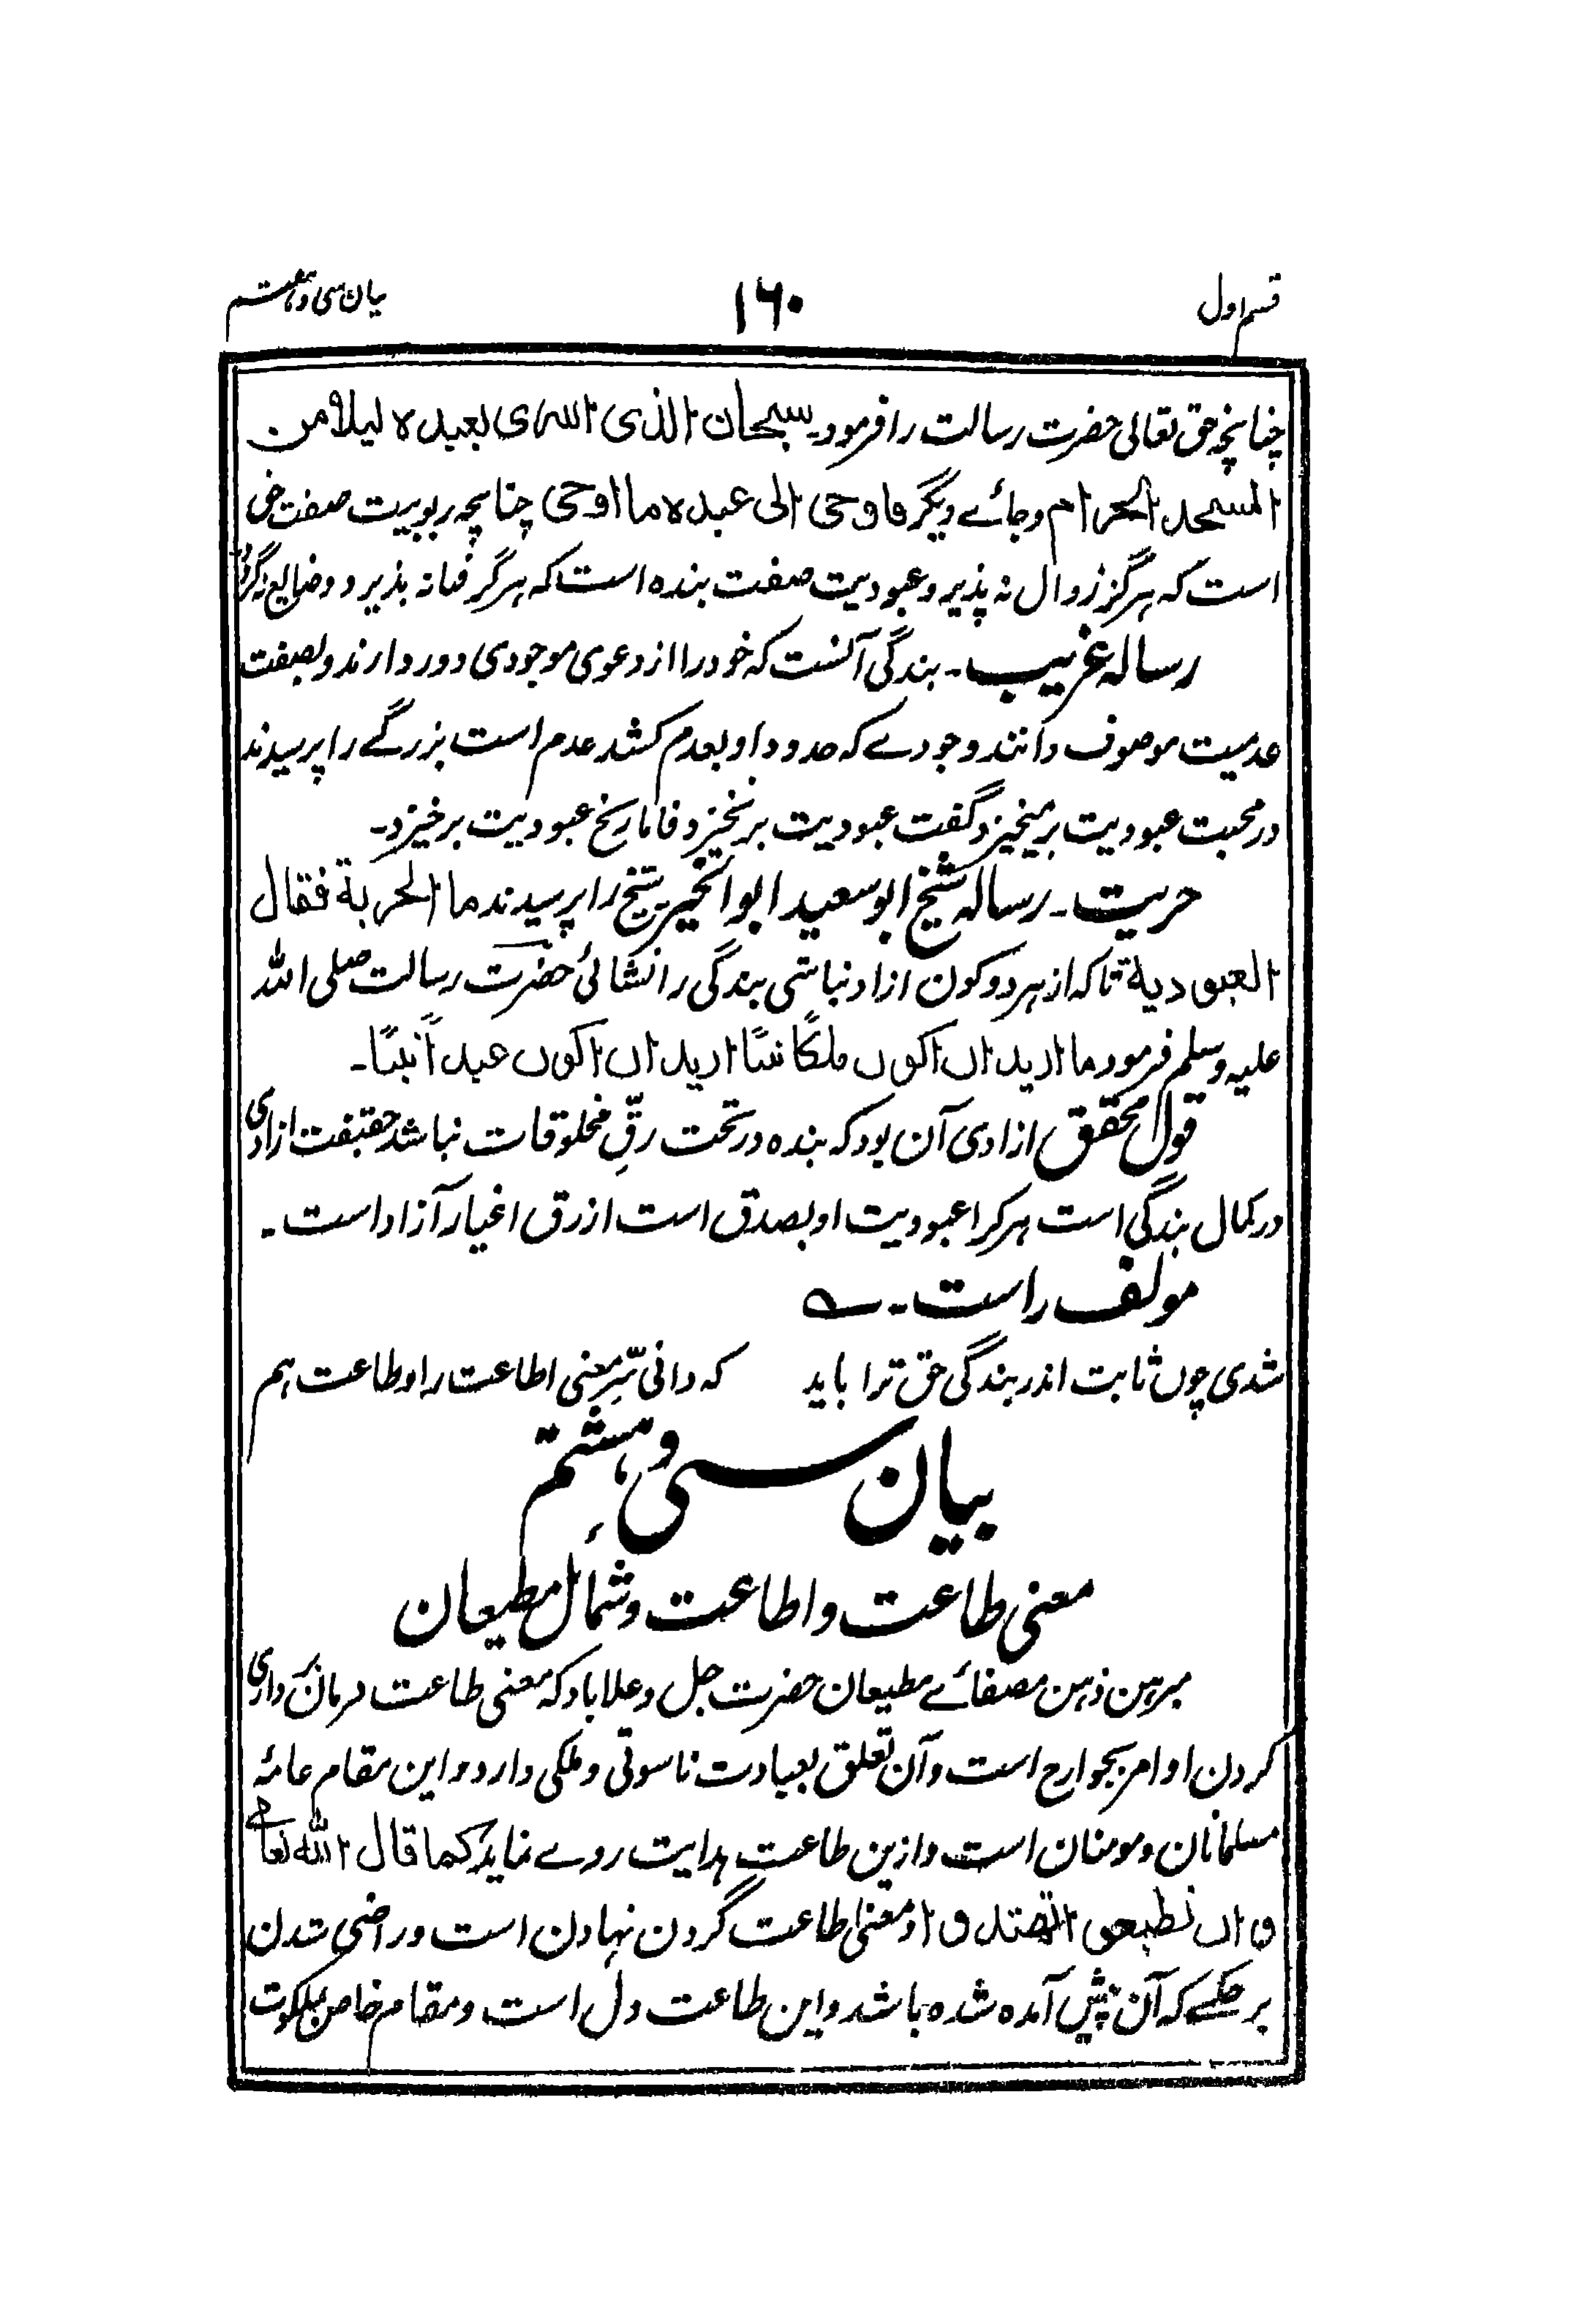 قسم اول ۱۶۰ بیان سی و هفتم
چنانچه حق تعالی حضرت رسالت را فرمود۔ سبحان الذی اسری بعبده لیلا من
المسجد الحرام و جائے دیگر فاوحی الی عبده ما اوحی چنانچه ربوبیت صفت حق
است که هرگز زوال نه پذیرد و عبودیت صفت بنده است که هرگز فنا نه پذیرد و ضایع نگردد
رساله غریب۔ بندگی آنست که خود را از دعوی موجودی دور دارند و بصفت
عدمیت موصوف دانند وجودے که حدود او بعدم کشد عدم است بزرگے را پرسیدند
در محبت عبودیت برمیخیزد گفت عبودیت برنخیزد فاما رنج عبودیت برخیزد۔
حریت۔ رساله شیخ ابو سعید ابو الخیر۔ شیخ را پرسیدند ما الحریة فقال
العبودیة تا که از هر دو کون ازاد نباشی بندگی را نشائی حضرت رسالت صلی الله
علیه وسلم فرمود ما ارید ان اکون ملکًا نبیًا ارید ان اکون عبدًا نبیًا۔
قول محقق ازادی آن بود که بنده در تحت رقِّ مخلوقات نباشد حقیقت ازادی
در کمال بندگی است هر کرا عبودیت او بصدق است از رق اغیار آزاد است۔
مولف راست۔ ؎
شدی چوں ثابت اندر بندگی حق ترا باید که دانی سِّرِ معنی اطاعت را و طاعت هم
بیان سی و هشتم
معنی طاعت و اطاعت و شمائل مطیعان
مبرهن ذهن مصفائے مطیعان حضرت جل و علا باد که معنی طاعت فرمان برداری
کردن اوامر بجوارح است و آن تعلق بعبادت ناسوتی و ملکی دارد و این مقام عامهٔ
مسلمانان و مومنان است و ازین طاعت هدایت روے نماید کما قال الله تعالی
و ان تطیعوه تهتدوا و معنی اطاعت گردن نهادن است و راضی شدن
بر حکمے که آن پیش آمده شده باشد و این طاعت دل است و مقام خاص ملکوت